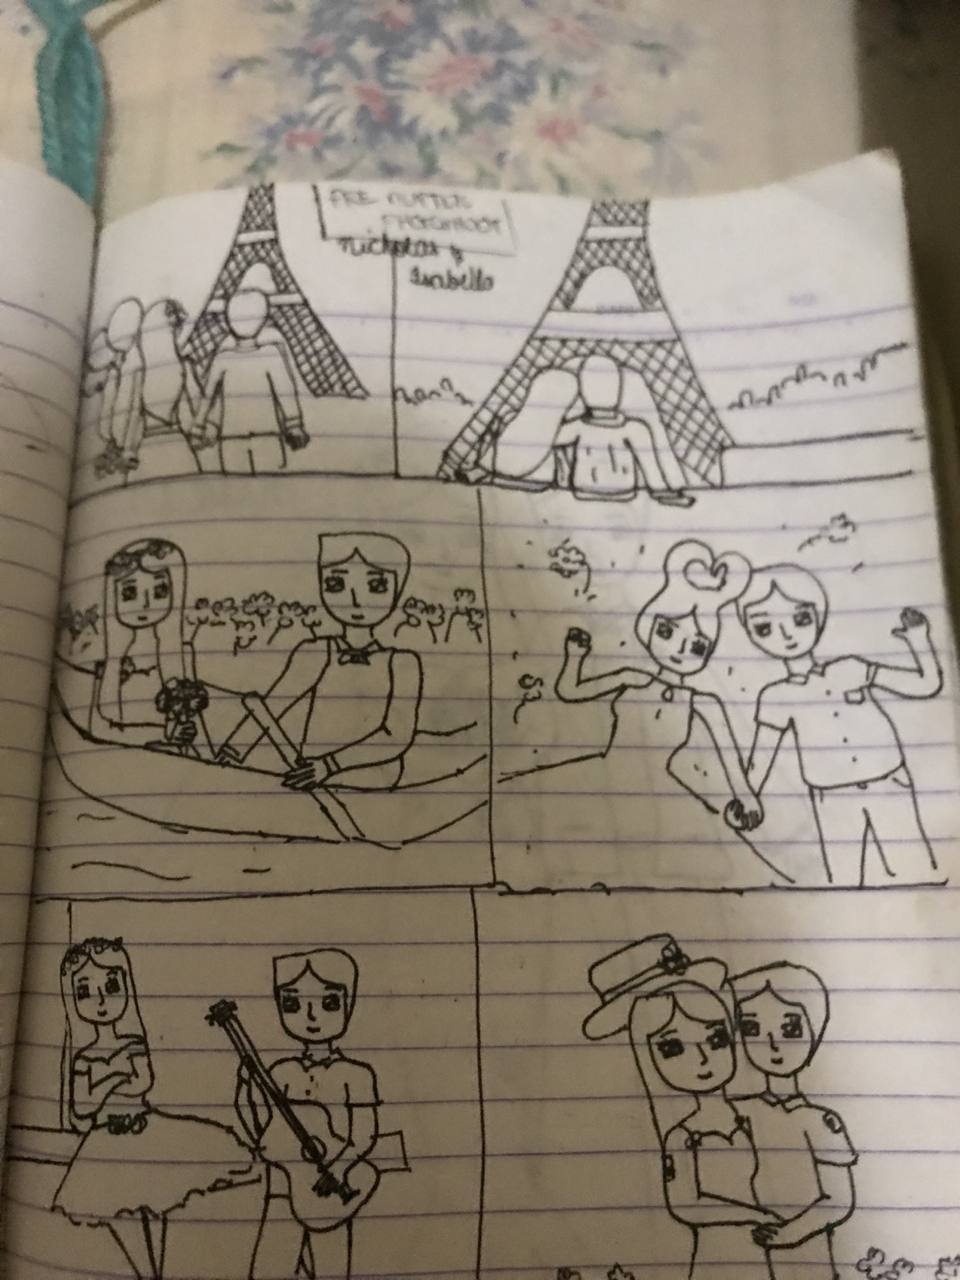 PRE NUPTIAL
PHOTOSHOOT
Nicholas &
Isabella